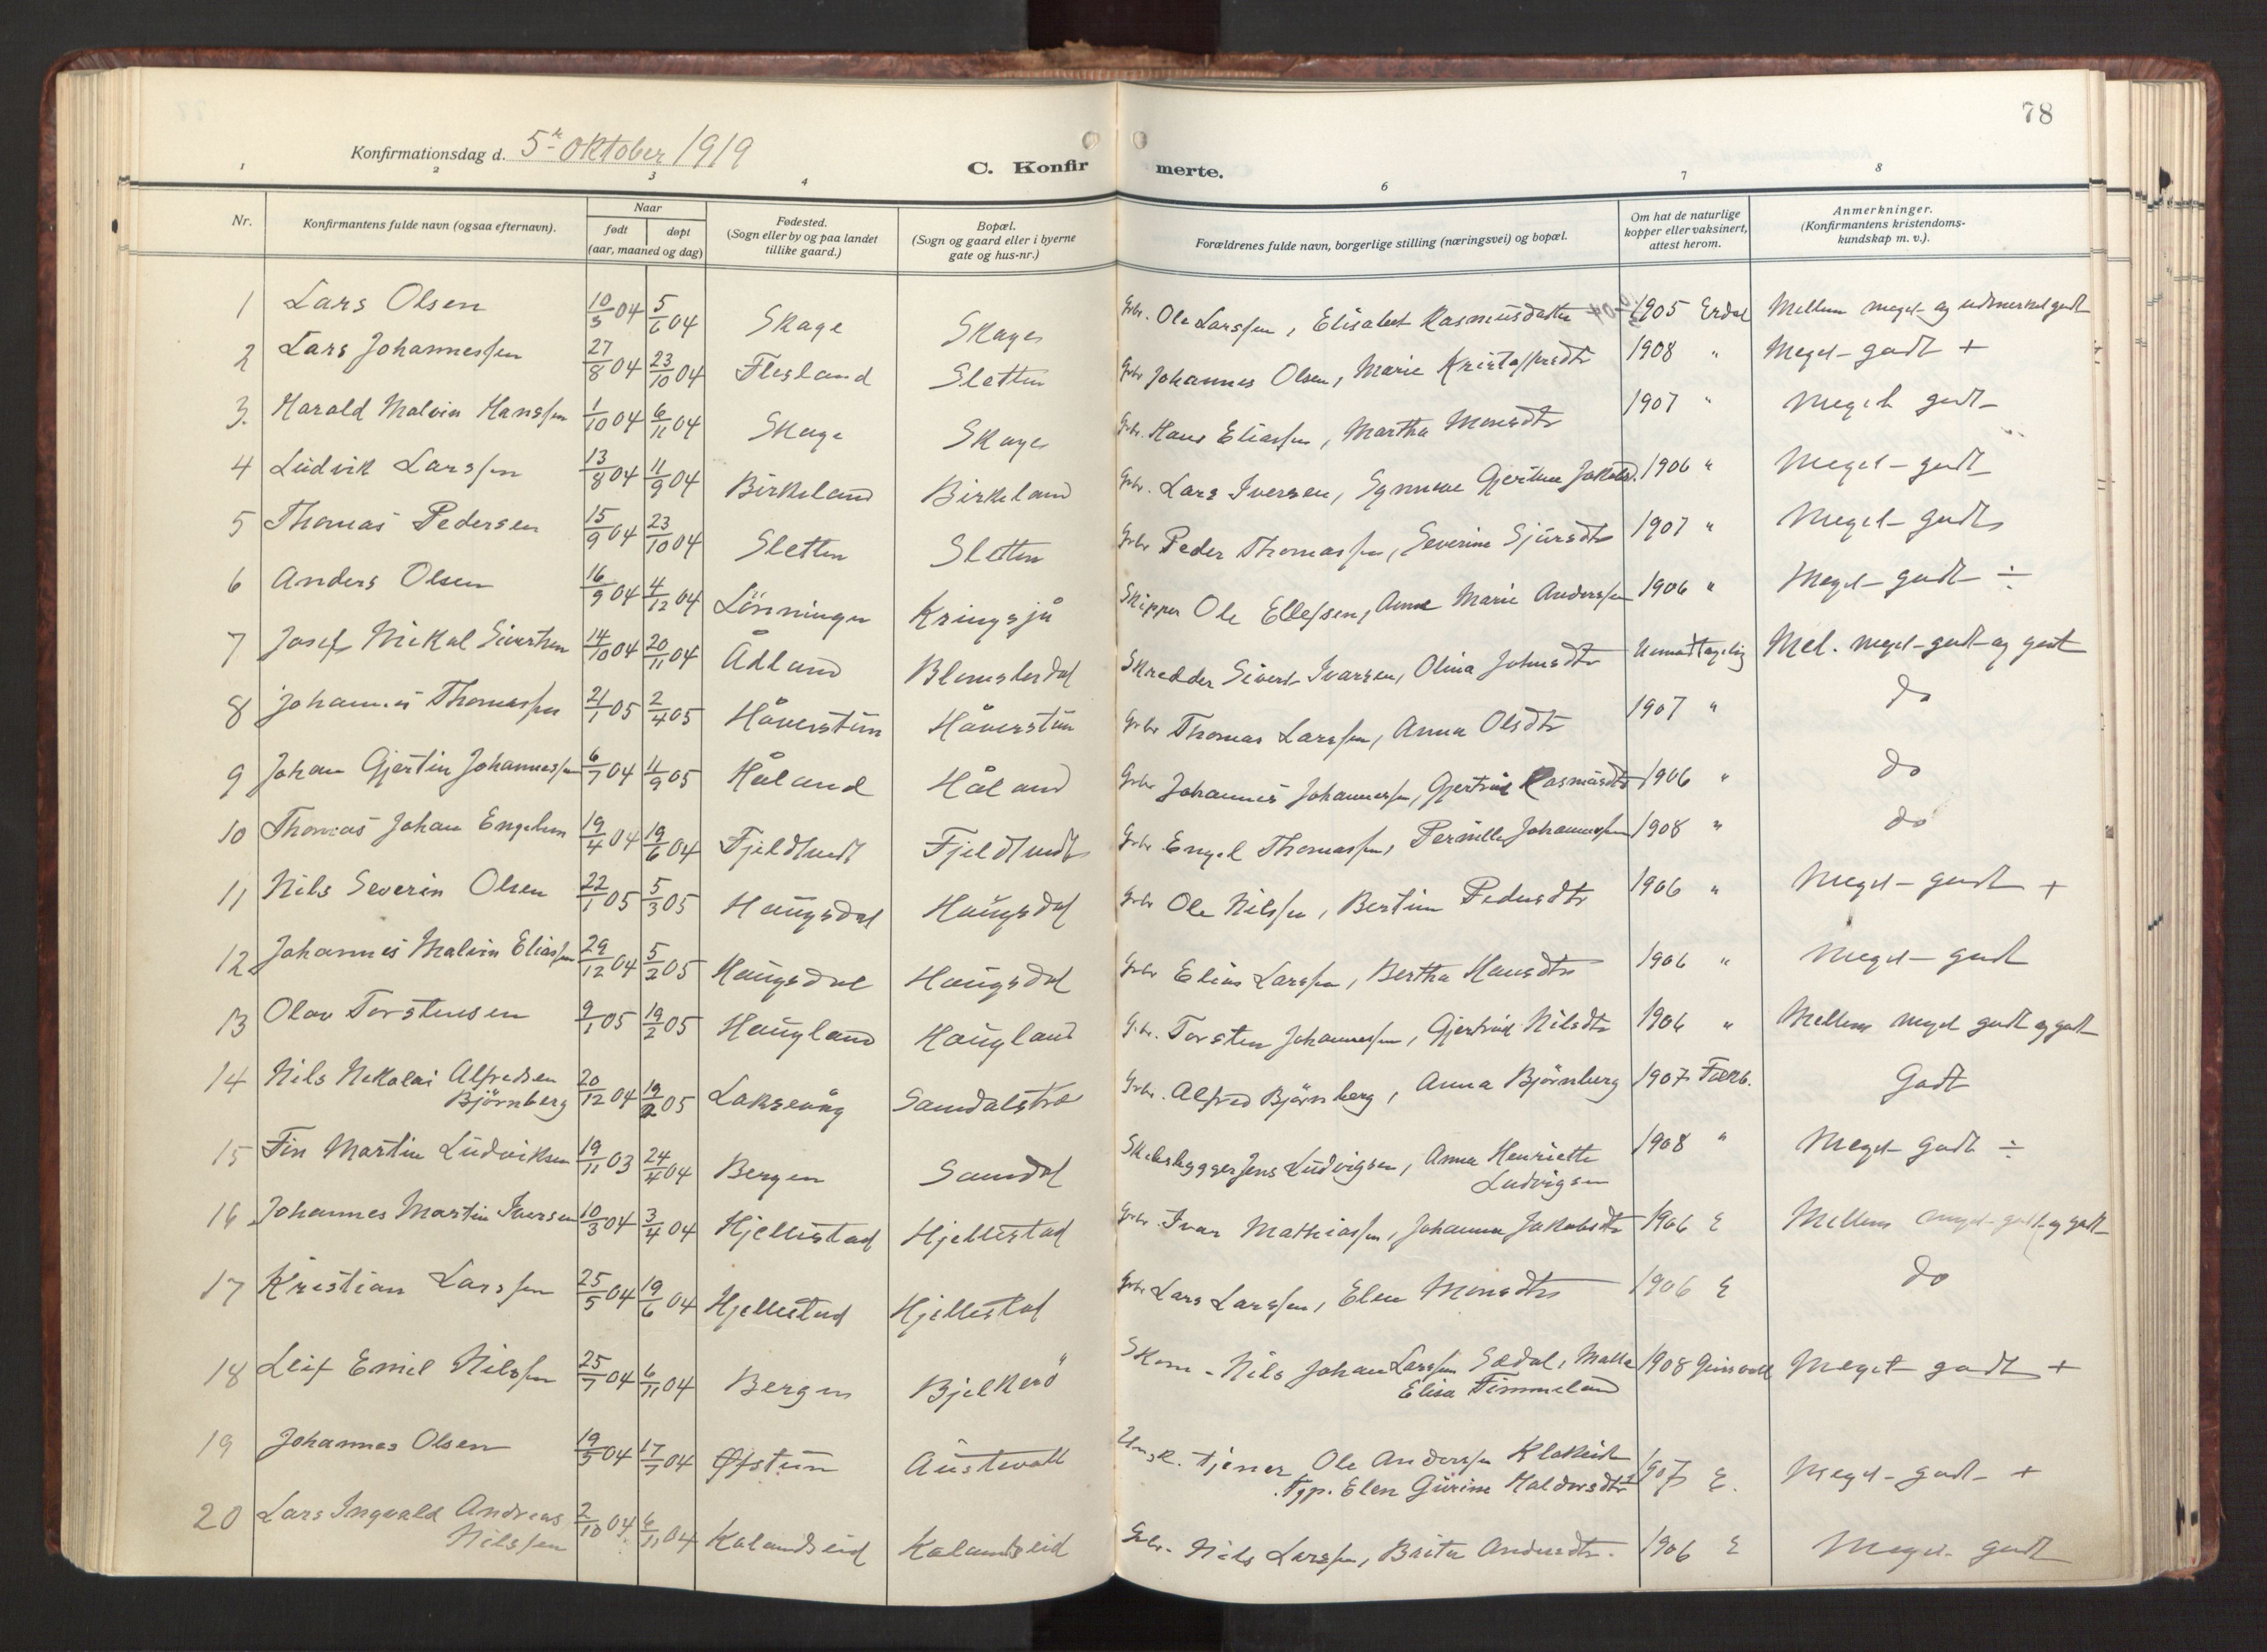 78
Konfirmationsdag d. 5te Oktober 1919
C. Konfirmerte.
1 2 3 4 6 7 8
Nr. Konfirmantens fulde navn (ogsaa efternavn). Naar født døpt (aar, maaned og dag) Fødested. (Sogn eller by og paa landet tillike gaard.) Bopæl. (Sogn og gaard eller i byerne gate og hus-nr.) Forældrenes fulde navn, borgerlige stilling (næringsvei) og bopæl. Om hat de naturlige kopper eller vaksinert, attest herom. Anmerkninger. (Konfirmantens kristendoms-kundskap m. v.).
1 Lars Olsen 10/3 04 5/6 04 Skage Skage Gbr. Ole Larssen, Elisabet Rasmusdatter 1905 Erdal Mellem meget- og udmerket godt
2 Lars Johannessen 27/8 04 23/10 04 Flesland Sletten Gbr Johannes Olsen, Marie Kristoffersdtr 1908 " Meget- godt +
3. Harald Malvin Hanssen 1/10 04 6/11 04 Skage Skage Gbr. Hans Eliassen, Martha Monsdtr 1907 " Meget godt
4 Ludvik Larssen 13/8 04 11/9 04 Birkeland Birkeland Gbr. Lars Iversen, Synneve Gjertine Jakobsd. 1906 " Meget- godt
5 Thomas Pedersen 15/9 04 23/10 04 Sletten Sletten Gbr Peder Thomassen, Severine Sjursdtr 1907 " Meget- godt
6 Anders Olsen 16/9 04 4/12 04 Lönningen Kringsjå Skipper Ole Ellefsen, Anne Marie Anderssen 1906 " Meget- godt ÷
7 Josef Mikal Sivertsen 14/10 04 20/11 04 Ådland Blomsterdal Skredder Sivert Ivarsen, Olina Johnsdtr Uimodtagelig Mel. meget- godt og godt
8 Johannes Thomassen 21/1 05 2/4 05 Håverstun Håverstun Gbr Thomas Larssen, Anna Olsdtr 1907 " do
9 Johan Gjertin Johannessen 6/7 04 11/9 05 Håland Håland Gbr Johannes Johannessen, Gjertrud Rasmusdtr 1906 " do
10 Thomas Johan Engelsen 19/4 04 19/6 04 Fjeldtvedt Fjeldtvedt Gbr Engel Thomassen, Pernille Johannessen 1908 " do
11 Nils Severin Olsen 22/1 05 5/3 05 Haugsdal Haugsdal Gbr Ole Nilssen, Bertine Pedersdtr 1906 " Meget- godt +
12 Johannes Malvin Eliassen 29/12 04 5/2 05 Haugsdal Haugsdal Gbr Elias Larssen, Bertha Hansdtr 1906 " Meget- godt
13 Olav Torstensen 9/1 05 19/2 05 Haugland Haugland Gbr. Torsten Johannessen, Gjertrud Nilsdtr 1906 " Mellem meget godt og godt
14 Nils Nikolai Alfredsen Björnberg 20/12 04 19/2 05 Laksevåg Samdalstræ Gbr. Alfred Björnberg, Anna Björnberg 1907 Godt
15 Fin Martin Ludviksen 19/11 03 24/4 04 Bergen Samdal Skibsbygger Jens Ludvigsen, Anna Henriette Ludvigsen 1908 " Meget godt ÷
16 Johannes Martin Iversen 10/3 04 3/4 04 Hjellestad Hjellestad Gbr Ivar Mathiassen, Johanna Jakobsdtr 1906 E Mellem meget- godt og godt
17 Kristian Larssen 25/5 04 19/6 04 Hjellestad Hjellestad Gbr Lars Larssen, Elen Monsdtr 1906 E do
18 Leif Emil Nilssen 25/7 04 6/11 04 Bergen Bjelkerö Skom. Nils Johan Larssen Sædal, Malla Elisa Fimmeland 1908 Meget godt +
19 Johannes Olsen 19/5 04 17/7 04 Øfstun Austevoll Ungk. Tjener Ole Anderssen Klokeide Tgp. Elen Gurine Haldorsdtr 1907 E. Meget- godt +
20 Lars Ingvald Andreas Nilssen 2/10 04 6/11 04 Kalandseid Kalandseid Gbr. Nils Larssen, Brita Andersdtr. 1906 E Meget- godt